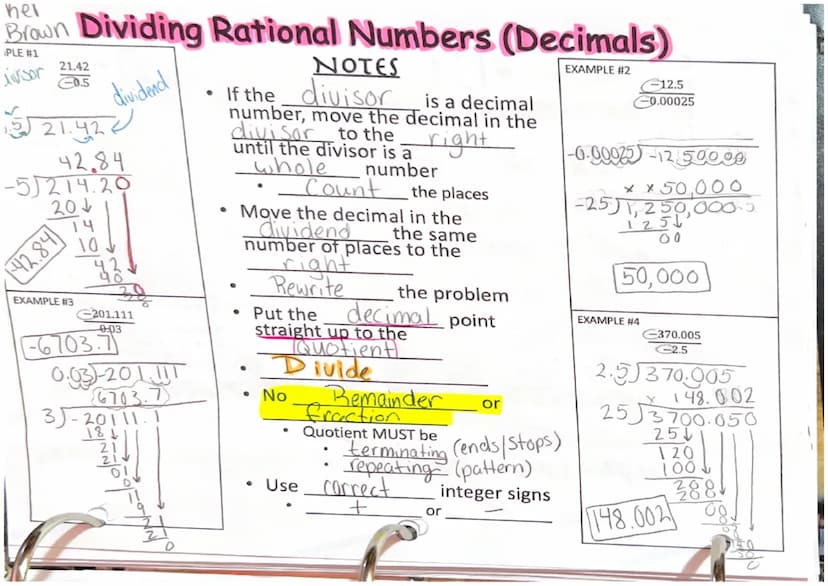 her
Brown
Dividing Rational Numbers (Decimals)
PLE #1
21.42
-0.5
ivisor
dividend
.5)21.42
42.84
-5)214.20
20
14
10
42
40
20
-42.84
NOTES
• If the divisor is a decimal
number, move the decimal in the
divisor to the right
until the divisor is a
whole number
• Count the places
• Move the decimal in the
dividend the same
number of places to the
right
• Rewrite the problem
• Put the decimal point
straight up to the
Quotient
• Divide
• No Remainder or
fraction
• Quotient MUST be
• terminating (ends|stops)
• repeating (pattern)
• Use correct integer signs
• + or −
EXAMPLE #2
-12.5
-0.00025
-0.00025)-12.50000
x x 50,000
-25)1,250,000
125
00
50,000
EXAMPLE #3
-201.111
0.03
-6703.7
0.03)-201.111
6703.7
3)-20111.1
18
21
21
01
0
11
9
21
21
0
EXAMPLE #4
-370.005
-2.5
2.5)370.005
x 148.002
25)3700.050
25
120
100
200
200
00
50
0
148.002